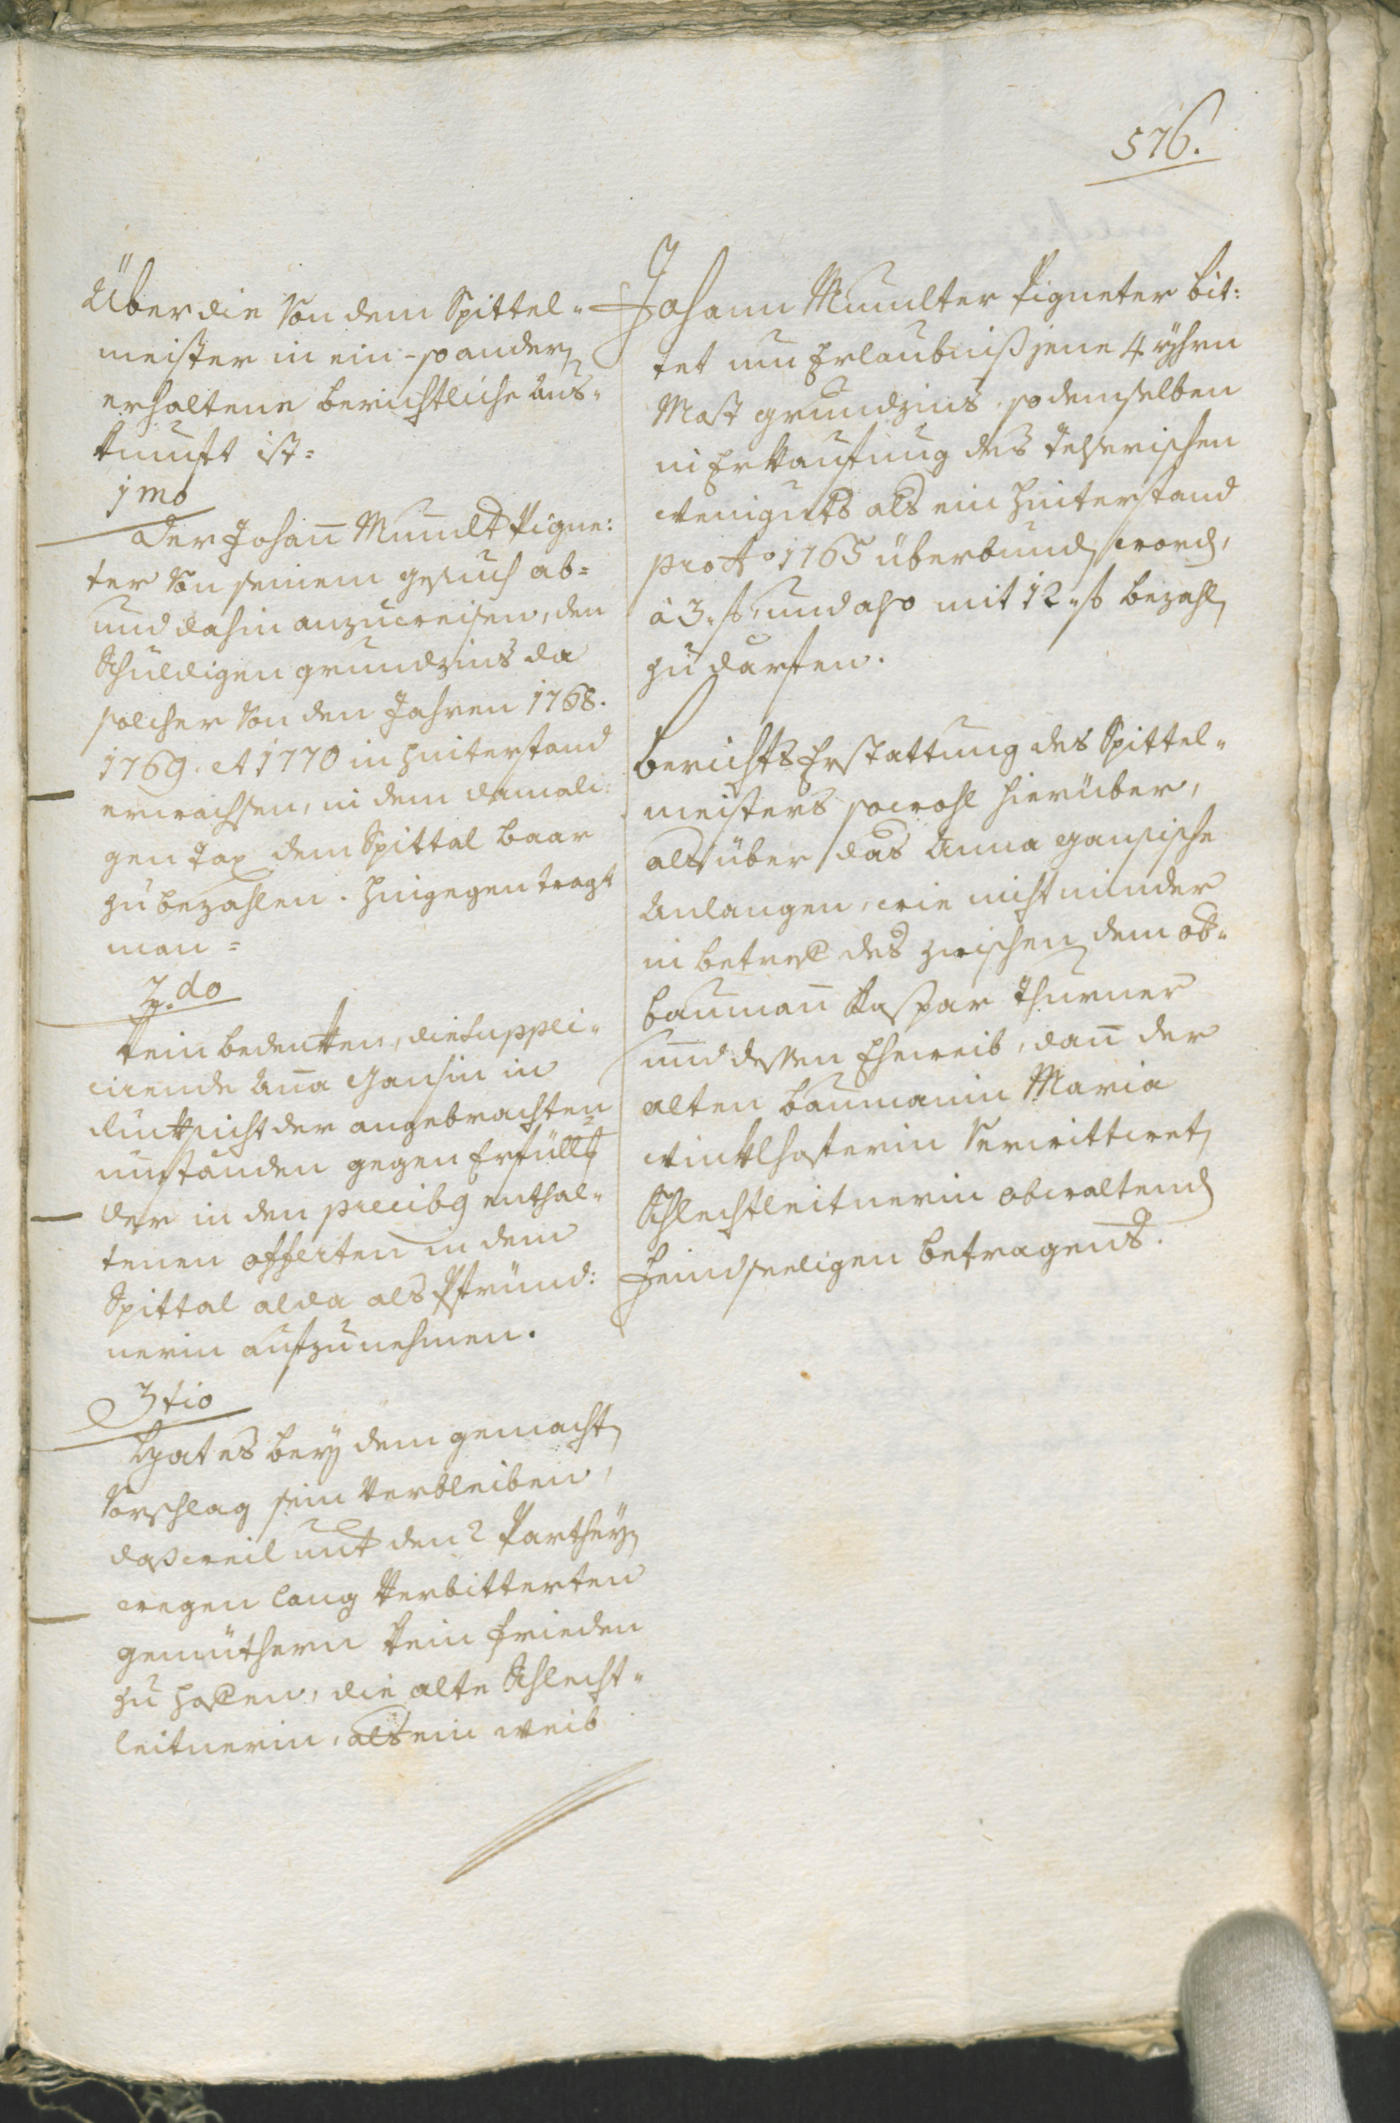 576.
Über die von dem Spittel-
meister in ein- so andern
erhaltene berichtliche Aus-
kunft ist:
1mo
Der Johann Munter Pigne:
ter von seinem gesuch ab-
und dahin anzuweisen, den
Schuldigen grundzins da
solcher von den Jahren 1768.
1769. et 1770 in hinterstand
erwachsen, in dem damali:
gen Tax dem Spittal baar
zu bezahlen. Hingegen tragt
man =
2.do
kein bedenken, die Suppli-
cirende Anna Gansin in
Rucksicht der angebrachten
umständen gegen Erfüllung
der in den precibus enthal-
tenen offerten in dem
Spittal alda als Pfründ:
nerin aufzunehmen.
3tio
Hat es bey dem gemachten
Vorschlag sein Verbleiben,
dass weil mit den 2 Partheyen
wegen lang Verbitterten
gemüthern kein frieden
zu hoffen, die alte Schlecht-
leitnerin, als ein Weib
Johann Pigneter bit:
tet um Erlaubniß jene 4 yhrn
Most grundzins, so demselben
in Erkaufung des
weinguts als ein hinterstand
pro Ao 1765 überbunden worden,
à 3 f und also mit 12 f bezahlen
zu därfen.
Berichts Erstattung des Spittel-
meisters sowohl hierüber,
als über das Anna Gansische
Anlangen, wie nicht minder
in betref des zwischen dem ob-
baumann Kaspar Thurner
und dessen Eheweib, dann der
alten baumanin Maria
Winklhoferin Verwittweten
Schlechtleitnerin obwaltenden
feindseeligen betragens.